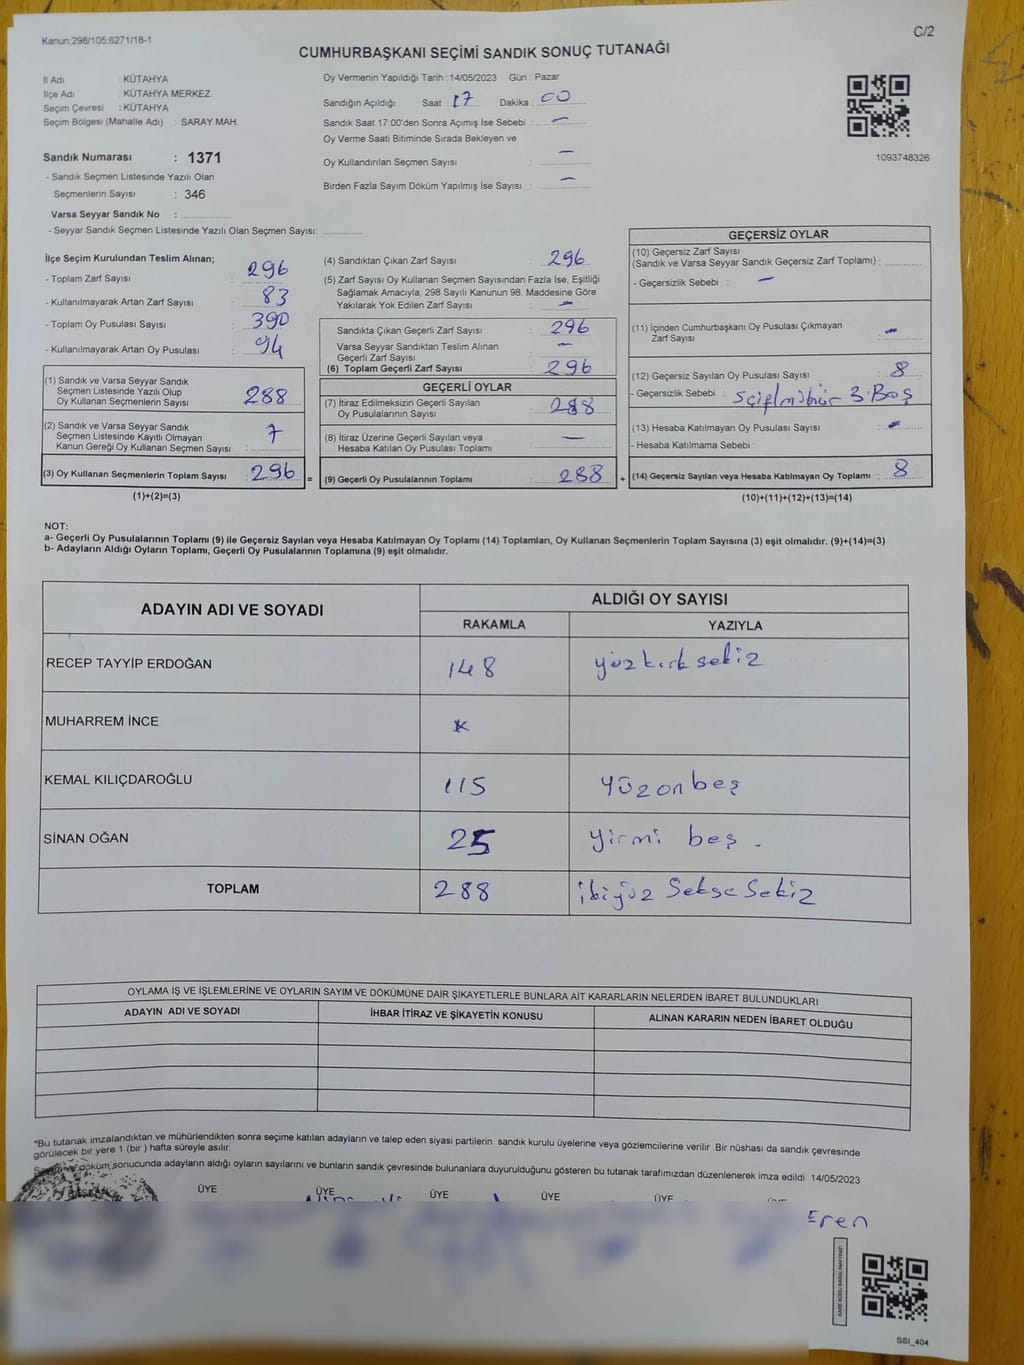 Kanun;298/105;6271/18-1
C/2
CUMHURBAŞKANI SEÇİMİ SANDIK SONUÇ TUTANAĞI
İl Adı : KÜTAHYA
İlçe Adı : KÜTAHYA MERKEZ
Seçim Çevresi : KÜTAHYA
Seçim Bölgesi (Mahalle Adı) : SARAY MAH.
Sandık Numarası : 1371
- Sandık Seçmen Listesinde Yazılı Olan
Seçmenlerin Sayısı : 346
Varsa Seyyar Sandık No :
- Seyyar Sandık Seçmen Listesinde Yazılı Olan Seçmen Sayısı:
Oy Vermenin Yapıldığı Tarih :14/05/2023 Gün : Pazar
Sandığın Açıldığı Saat 17 Dakika : 00
Sandık Saat 17:00'den Sonra Açımış İse Sebebi : —
Oy Verme Saati Bitiminde Sırada Bekleyen ve
Oy Kullandırılan Seçmen Sayısı : —
Birden Fazla Sayım Döküm Yapılmış İse Sayısı : —
1093748326
İlçe Seçim Kurulundan Teslim Alınan;
- Toplam Zarf Sayısı : 296
- Kullanılmayarak Artan Zarf Sayısı : 83
- Toplam Oy Pusulası Sayısı : 390
- Kullanılmayarak Artan Oy Pusulası : 94
(1) Sandık ve Varsa Seyyar Sandık
Seçmen Listesinde Yazılı Olup
Oy Kullanan Seçmenlerin Sayısı : 288
(2) Sandık ve Varsa Seyyar Sandık
Seçmen Listesinde Kayıtlı Olmayan
Kanun Gereği Oy Kullanan Seçmen Sayısı : 7
(3) Oy Kullanan Seçmenlerin Toplam Sayısı : 296
(1)+(2)=(3)
(4) Sandıktan Çıkan Zarf Sayısı : 296
(5) Zarf Sayısı Oy Kullanan Seçmen Sayısından Fazla İse, Eşitliği
Sağlamak Amacıyla; 298 Sayılı Kanunun 98. Maddesine Göre
Yakılarak Yok Edilen Zarf Sayısı : —
Sandıkta Çıkan Geçerli Zarf Sayısı : 296
Varsa Seyyar Sandıktan Teslim Alınan
Geçerli Zarf Sayısı : —
(6) Toplam Geçerli Zarf Sayısı : 296
GEÇERLİ OYLAR
(7) İtiraz Edilmeksizin Geçerli Sayılan
Oy Pusulalarının Sayısı : 288
(8) İtiraz Üzerine Geçerli Sayılan veya
Hesaba Katılan Oy Pusulası Toplamı : —
= (9) Geçerli Oy Pusulalarının Toplamı : 288 +
GEÇERSİZ OYLAR
(10) Geçersiz Zarf Sayısı
(Sandık ve Varsa Seyyar Sandık Geçersiz Zarf Toplamı) :
- Geçersizlik Sebebi : —
(11) İçinden Cumhurbaşkanı Oy Pusulası Çıkmayan
Zarf Sayısı : —
(12) Geçersiz Sayılan Oy Pusulası Sayısı : 8
- Geçersizlik Sebebi : 3. Boş
(13) Hesaba Katılmayan Oy Pusulası Sayısı : —
- Hesaba Katılmama Sebebi :
(14) Geçersiz Sayılan veya Hesaba Katılmayan Oy Toplamı : 8
(10)+(11)+(12)+(13)=(14)
NOT:
a- Geçerli Oy Pusulalarının Toplamı (9) ile Geçersiz Sayılan veya Hesaba Katılmayan Oy Toplamı (14) Toplamları, Oy Kullanan Seçmenlerin Toplam Sayısına (3) eşit olmalıdır. (9)+(14)=(3)
b- Adayların Aldığı Oyların Toplamı, Geçerli Oy Pusulalarının Toplamına (9) eşit olmalıdır.
ADAYIN ADI VE SOYADI
ALDIĞI OY SAYISI
RAKAMLA YAZIYLA
RECEP TAYYİP ERDOĞAN 148 yüzkırksekiz
MUHARREM İNCE
KEMAL KILIÇDAROĞLU 115 Yüzonbeş
SİNAN OĞAN 25 Yirmi beş .
TOPLAM 288 ikiyüz SekseSekiz
OYLAMA İŞ VE İŞLEMLERİNE VE OYLARIN SAYIM VE DÖKÜMÜNE DAİR ŞİKAYETLERLE BUNLARA AİT KARARLARIN NELERDEN İBARET BULUNDUKLARI
ADAYIN ADI VE SOYADI İHBAR İTİRAZ VE ŞİKAYETİN KONUSU ALINAN KARARIN NEDEN İBARET OLDUĞU
*Bu tutanak imzalandıktan ve mühürlendikten sonra seçime katılan adayların ve talep eden siyasi partilerin sandık kurulu üyelerine veya gözlemcilerine verilir .Bir nüshası da sandık çevresinde
görülecek bir yere 1 (bir ) hafta süreyle asılır.
döküm sonucunda adayların aldığı oyların sayılarını ve bunların sandık çevresinde bulunanlara duyurulduğunu gösteren bu tutanak tarafımızdan düzenlenerek imza edildi. 14/05/2023
ÜYE ÜYE ÜYE ÜYE ÜYE
Eren
SSI_404